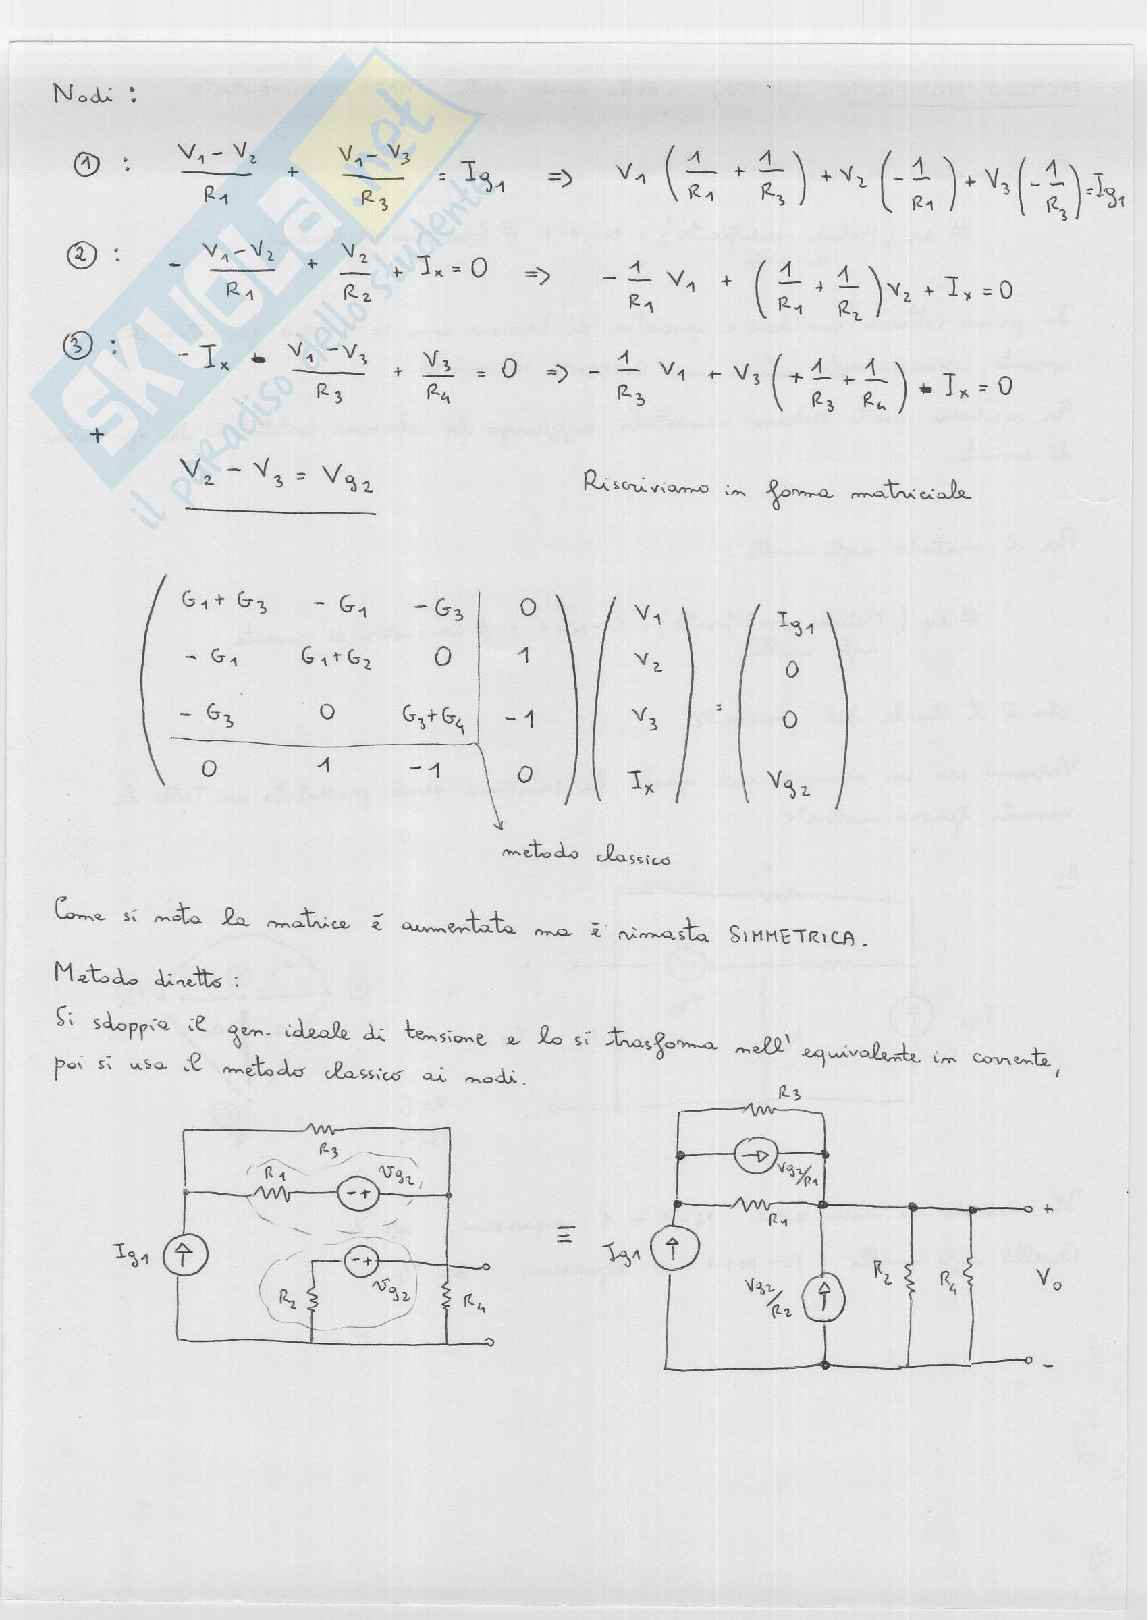 Nodi :
① : (V1 - V2)/R1 + (V1 - V3)/R3 = Ig1 => V1 (1/R1 + 1/R3) + V2 (-1/R1) + V3 (-1/R3) = Ig1
② : - (V1 - V2)/R1 + V2/R2 + Ix = 0 => - 1/R1 V1 + (1/R1 + 1/R2) V2 + Ix = 0
③ : - Ix - (V1 - V3)/R3 + V3/R4 = 0 => - 1/R3 V1 + V3 (+ 1/R3 + 1/R4) - Ix = 0
+
V2 - V3 = Vg2 Riscriviamo in forma matriciale
G1 + G3 - G1 - G3 0 V1 Ig1
- G1 G1 + G2 0 1 V2 0
- G3 0 G3 + G4 - 1 V3 = 0
0 1 -1 0 Ix Vg2
metodo classico
Come si nota la matrice è aumentata ma è rimasta SIMMETRICA.
Metodo diretto :
Si sdoppia il gen. ideale di tensione e lo si trasforma nell' equivalente in corrente,
poi si usa il metodo classico ai nodi.
R3
R1 - + Vg2
Ig1
- + Vg2
R2
R4
≡
R3
Vg2/R1
R1
Ig1
Vg2/R2
R2
R4
+
Vo
-
SKUOLA.net
il paradiso dello studente